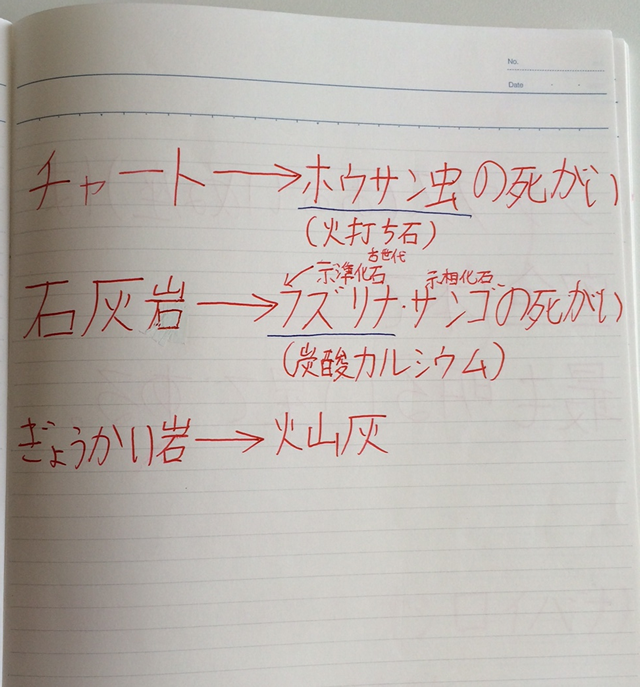 No.
Date
チャート→ホウサン虫の死がい
(火打ち石)
古世代
示準化石 示相化石
石灰岩→フズリナ・サンゴの死がい
(炭酸カルシウム)
ぎょうかい岩→火山灰